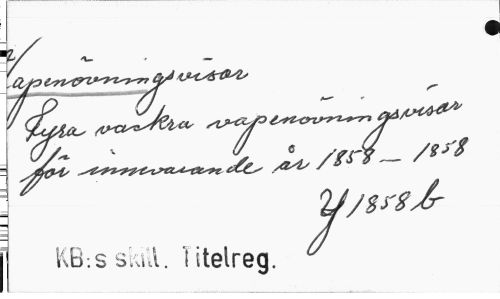 Vapenövningsvisor
Fyra vackra vapenövningsvisor
för innevarande år 1858 – 1858
Y 1858 b
KB:s skill. Titelreg.